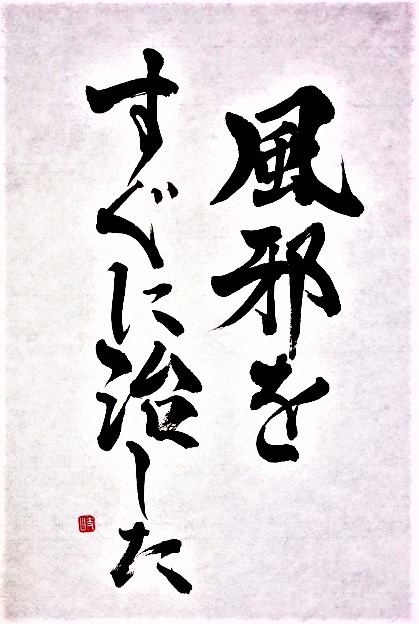 風邪を
すぐに治した